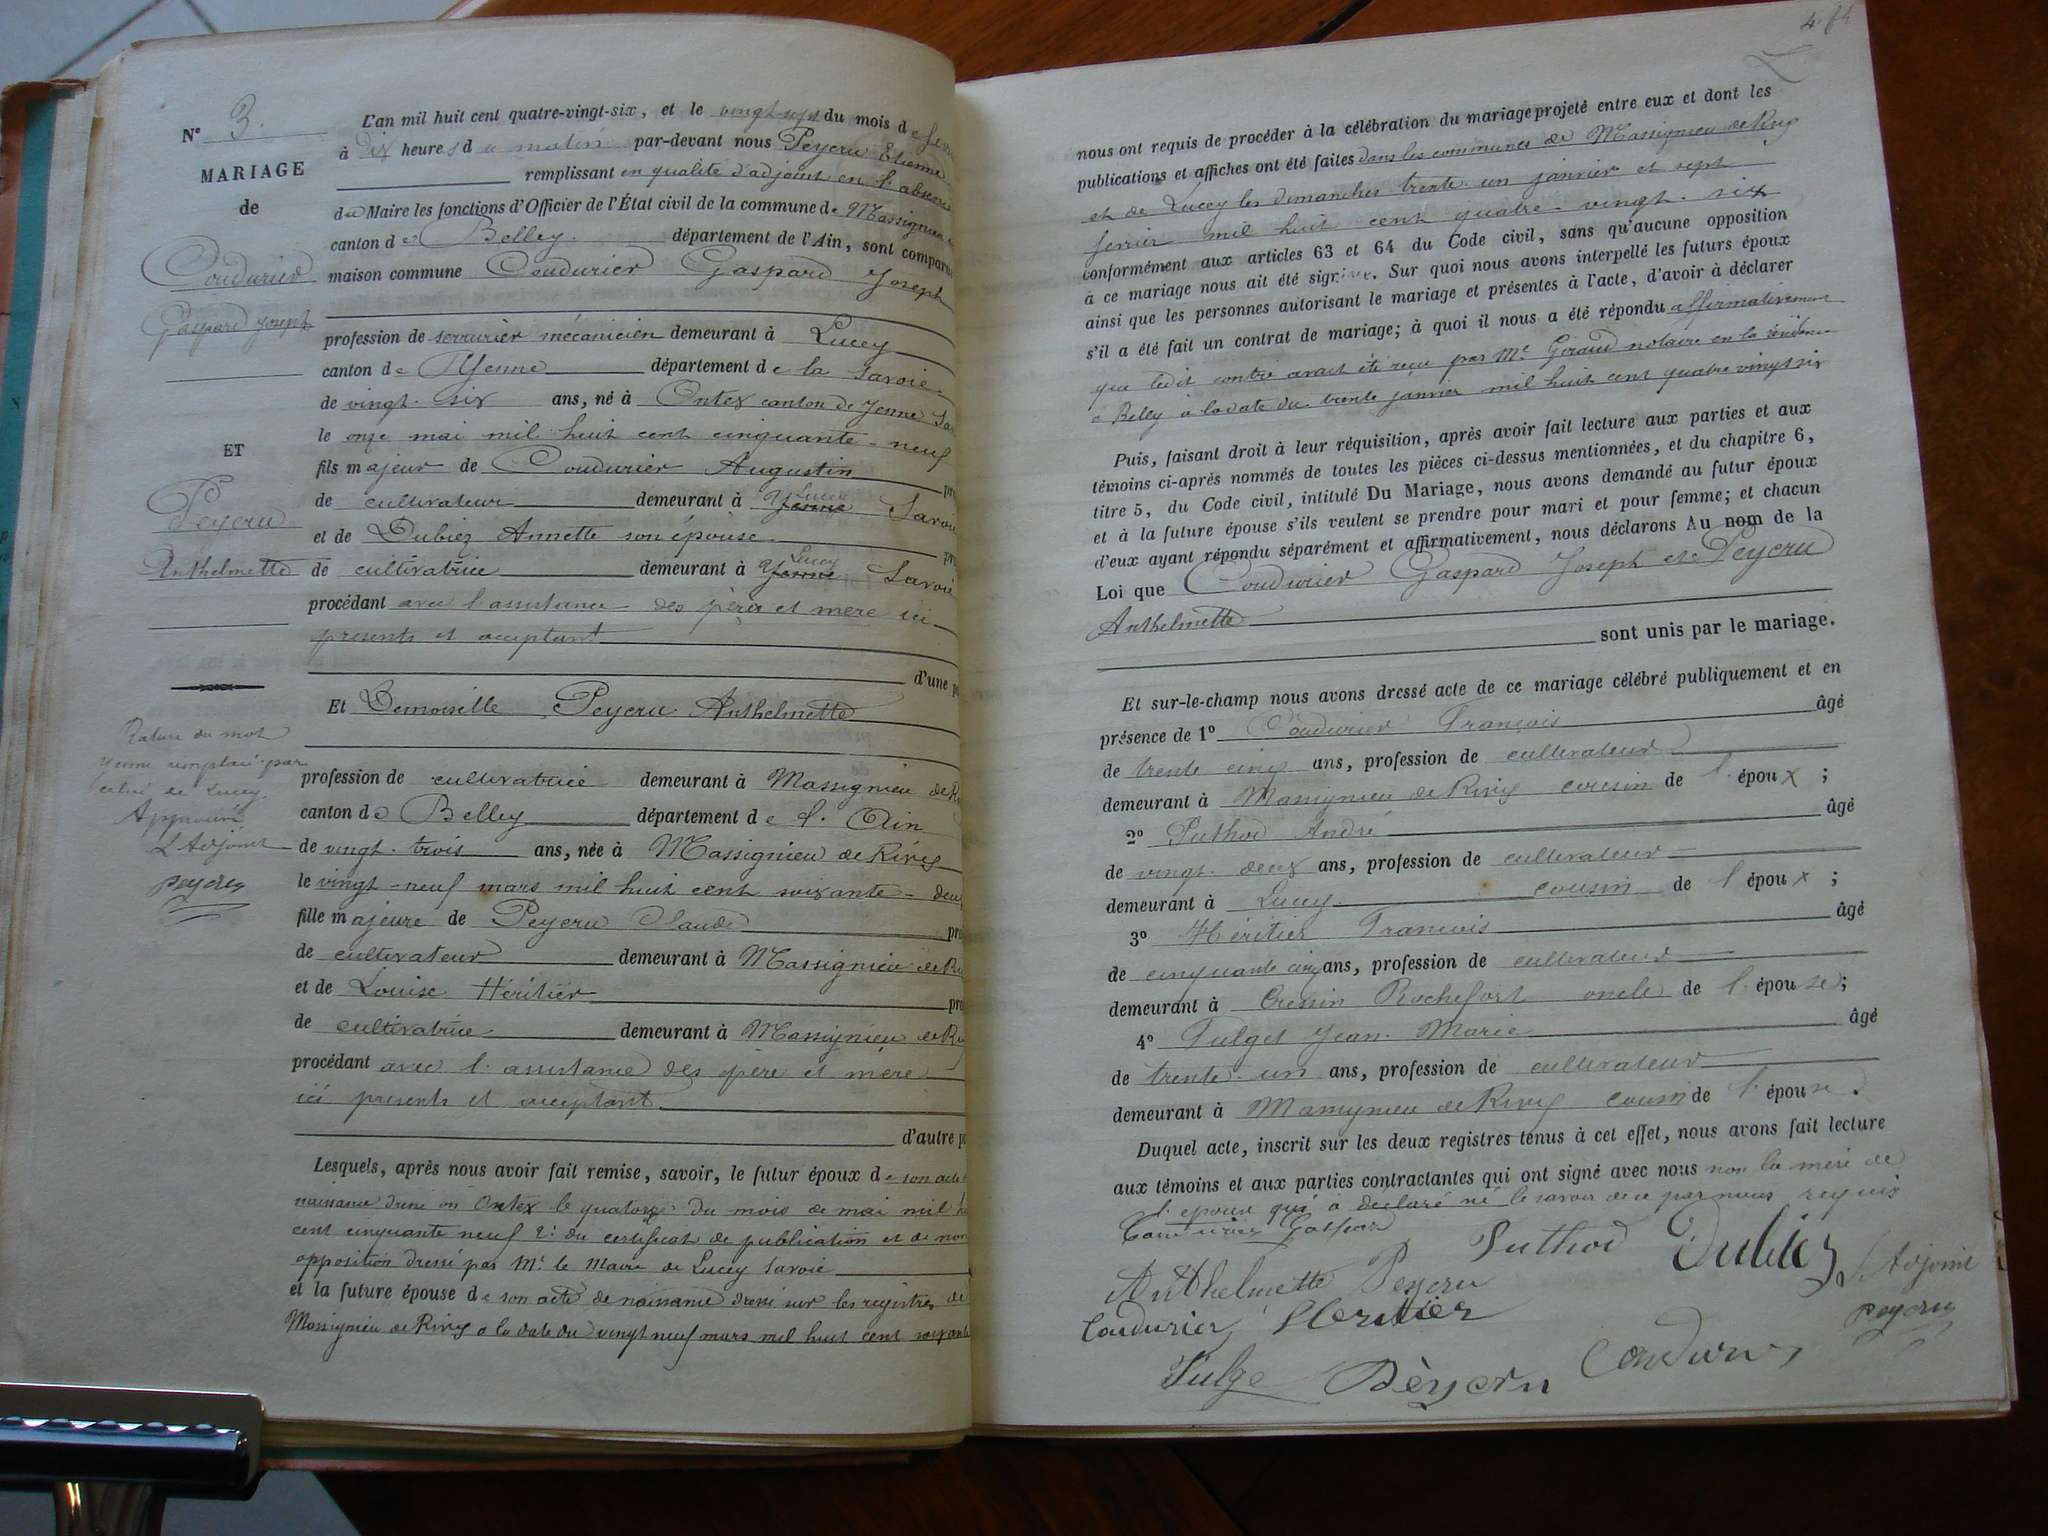 N° 3.
MARIAGE
de
Coudurier
Gaspard Joseph
ET
Peycru
Anthelmette
Rature du mot
Yenne remplacé par
celui de Lucey.
Approuvé
L'Adjoint
Peycru
L'an mil huit cent quatre-vingt-six, et le vingt-sept du mois de
à Dix heures du matin par-devant nous Peycru Etienne
remplissant en qualité d'adjoint en l'absence
du Maire les fonctions d'Officier de l'État civil de la commune de Massignieu
canton de Belley. département de l'Ain, sont comparus
maison commune Coudurier Gaspard Joseph
profession de serrurier mécanicien demeurant à Lucey
canton de Yenne département de la Savoie
de vingt-six ans, né à Ontex canton de Yenne Sa
le onze mai mil huit cent cinquante-neuf
fils majeur de Coudurier Augustin
de cultivateur demeurant à Yenne Lucey Savoie
et de Dubiez Annette son épouse
de cultivatrice demeurant à Yenne Lucey Savoie
procédant avec l'assistance des père et mère ici
presents et acceptant
d'une p
Et Demoiselle Peycru Anthelmette
profession de cultivatrice demeurant à Massignieu de Ri
canton de Belley département de l'Ain
de vingt-trois ans, née à Massignieu de Rives
le vingt-neuf mars mil huit cent soixante-deux
fille majeure de Peycru Claude
de cultivateur demeurant à Massignieu de Ri
et de Louise Héritier
de cultivatrice demeurant à Massignieu de Ri
procédant avec l'assistance des père et mère
ici presents et acceptant
d'autre p
Lesquels, après nous avoir fait remise, savoir, le futur époux de son acte
naissance à Ontex le quatorze du mois de mai mil h
cent cinquante neuf 2: du certificat de publication et de non
opposition dressé par Mr le Maire de Lucey Savoie
et la future épouse de son acte de naissance dressé sur les registres de
Massignieu de Rives à la date du vingt neuf mars mil huit cent soixante
nous ont requis de procéder à la célébration du mariage projeté entre eux et dont les
publications et affiches ont été faites dans les communes de Massignieu de Rives
et de Lucey les dimanches trente-un janvier et sept
fevrier mil huit cent quatre-vingt-six
conformément aux articles 63 et 64 du Code civil, sans qu'aucune opposition
à ce mariage nous ait été signifiée. Sur quoi nous avons interpellé les futurs époux
ainsi que les personnes autorisant le mariage et présentes à l'acte, d'avoir à déclarer
s'il a été fait un contrat de mariage; à quoi il nous a été répondu affirmativement
que ledit contrat avait été reçu par Me Giraud notaire en la résidence
à Belley à la date du trente janvier mil huit cent quatre vingt six
Puis, faisant droit à leur réquisition, après avoir fait lecture aux parties et aux
témoins ci-après nommés de toutes les pièces ci-dessus mentionnées, et du chapitre 6,
titre 5, du Code civil, intitulé Du Mariage, nous avons demandé au futur époux
et à la future épouse s'ils veulent se prendre pour mari et pour femme; et chacun
d'eux ayant répondu séparément et affirmativement, nous déclarons Au nom de la
Loi que Coudurier Gaspard Joseph et Peycru
Anthelmette
sont unis par le mariage.
Et sur-le-champ nous avons dressé acte de ce mariage célébré publiquement et en
présence de 1° Coudurier François âgé
de trente cinq ans, profession de cultivateur
demeurant à Massignieu de Rives cousin de l'époux;
2° Puthod André âgé
de vingt-deux ans, profession de cultivateur
demeurant à Lucey cousin de l'époux;
3° Héritier François âgé
de cinquante cinq ans, profession de cultivateur
demeurant à Cressin Rochefort oncle de l'épouse;
4° Pulget Jean-Marie âgé
de trente-un ans, profession de cultivateur
demeurant à Massignieu de Rives cousin de l'épouse.
Duquel acte, inscrit sur les deux registres tenus à cet effet, nous avons fait lecture
aux témoins et aux parties contractantes qui ont signé avec nous non la mère de
l'époux qui a déclaré ne le savoir de ce par nous requis
Coudurier Gaspar Puthod Dubiez L'Adjoint
Anthelmette Peycru
Coudurier Heritier Peycru
Pulge Pèycru Coudurier